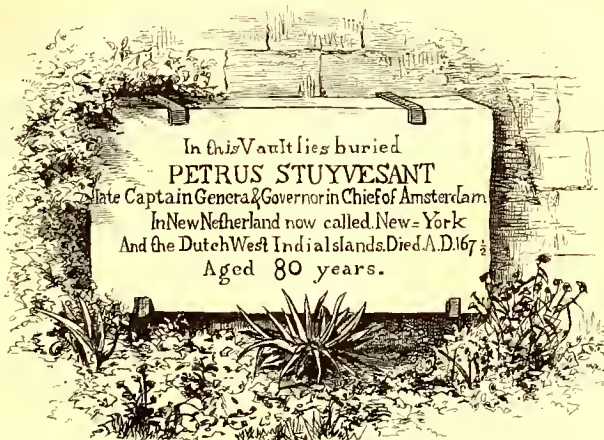 In this Vault lies buried
PETRUS STUYVESANT
late Captain Genera& Governor in Chief of Amsterdam
In New Netherland now called. New=York
And the Dutch West India Islands. Died. A.D. 167½
Aged 80 years.